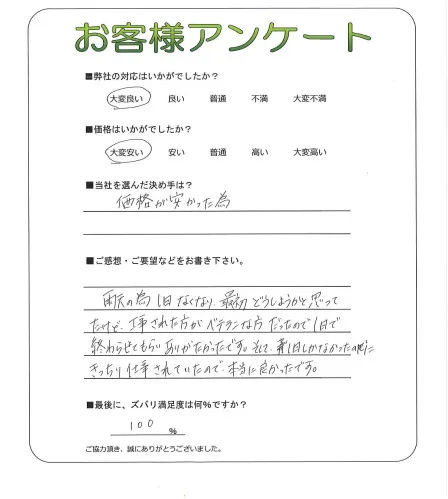 お客様アンケート
■弊社の対応はいかがでしたか？
大変良い 良い 普通 不満 大変不満
■価格はいかがでしたか？
大変安い 安い 普通 高い 大変高い
■当社を選んだ決め手は？
価格が安かった為
■ご感想・ご要望などをお書き下さい。
雨天の為 1日なくなり、最初どうしようかと思って
たけど、工事された方がベテランな方だったので1日で
終わらせてもらいありがたかったです。そして、1日しかなかったのに
きっちり仕事されていたので、本当に良かったです。
■最後に、ズバリ満足度は何%ですか？
100 %
ご協力頂き、誠にありがとうございました。